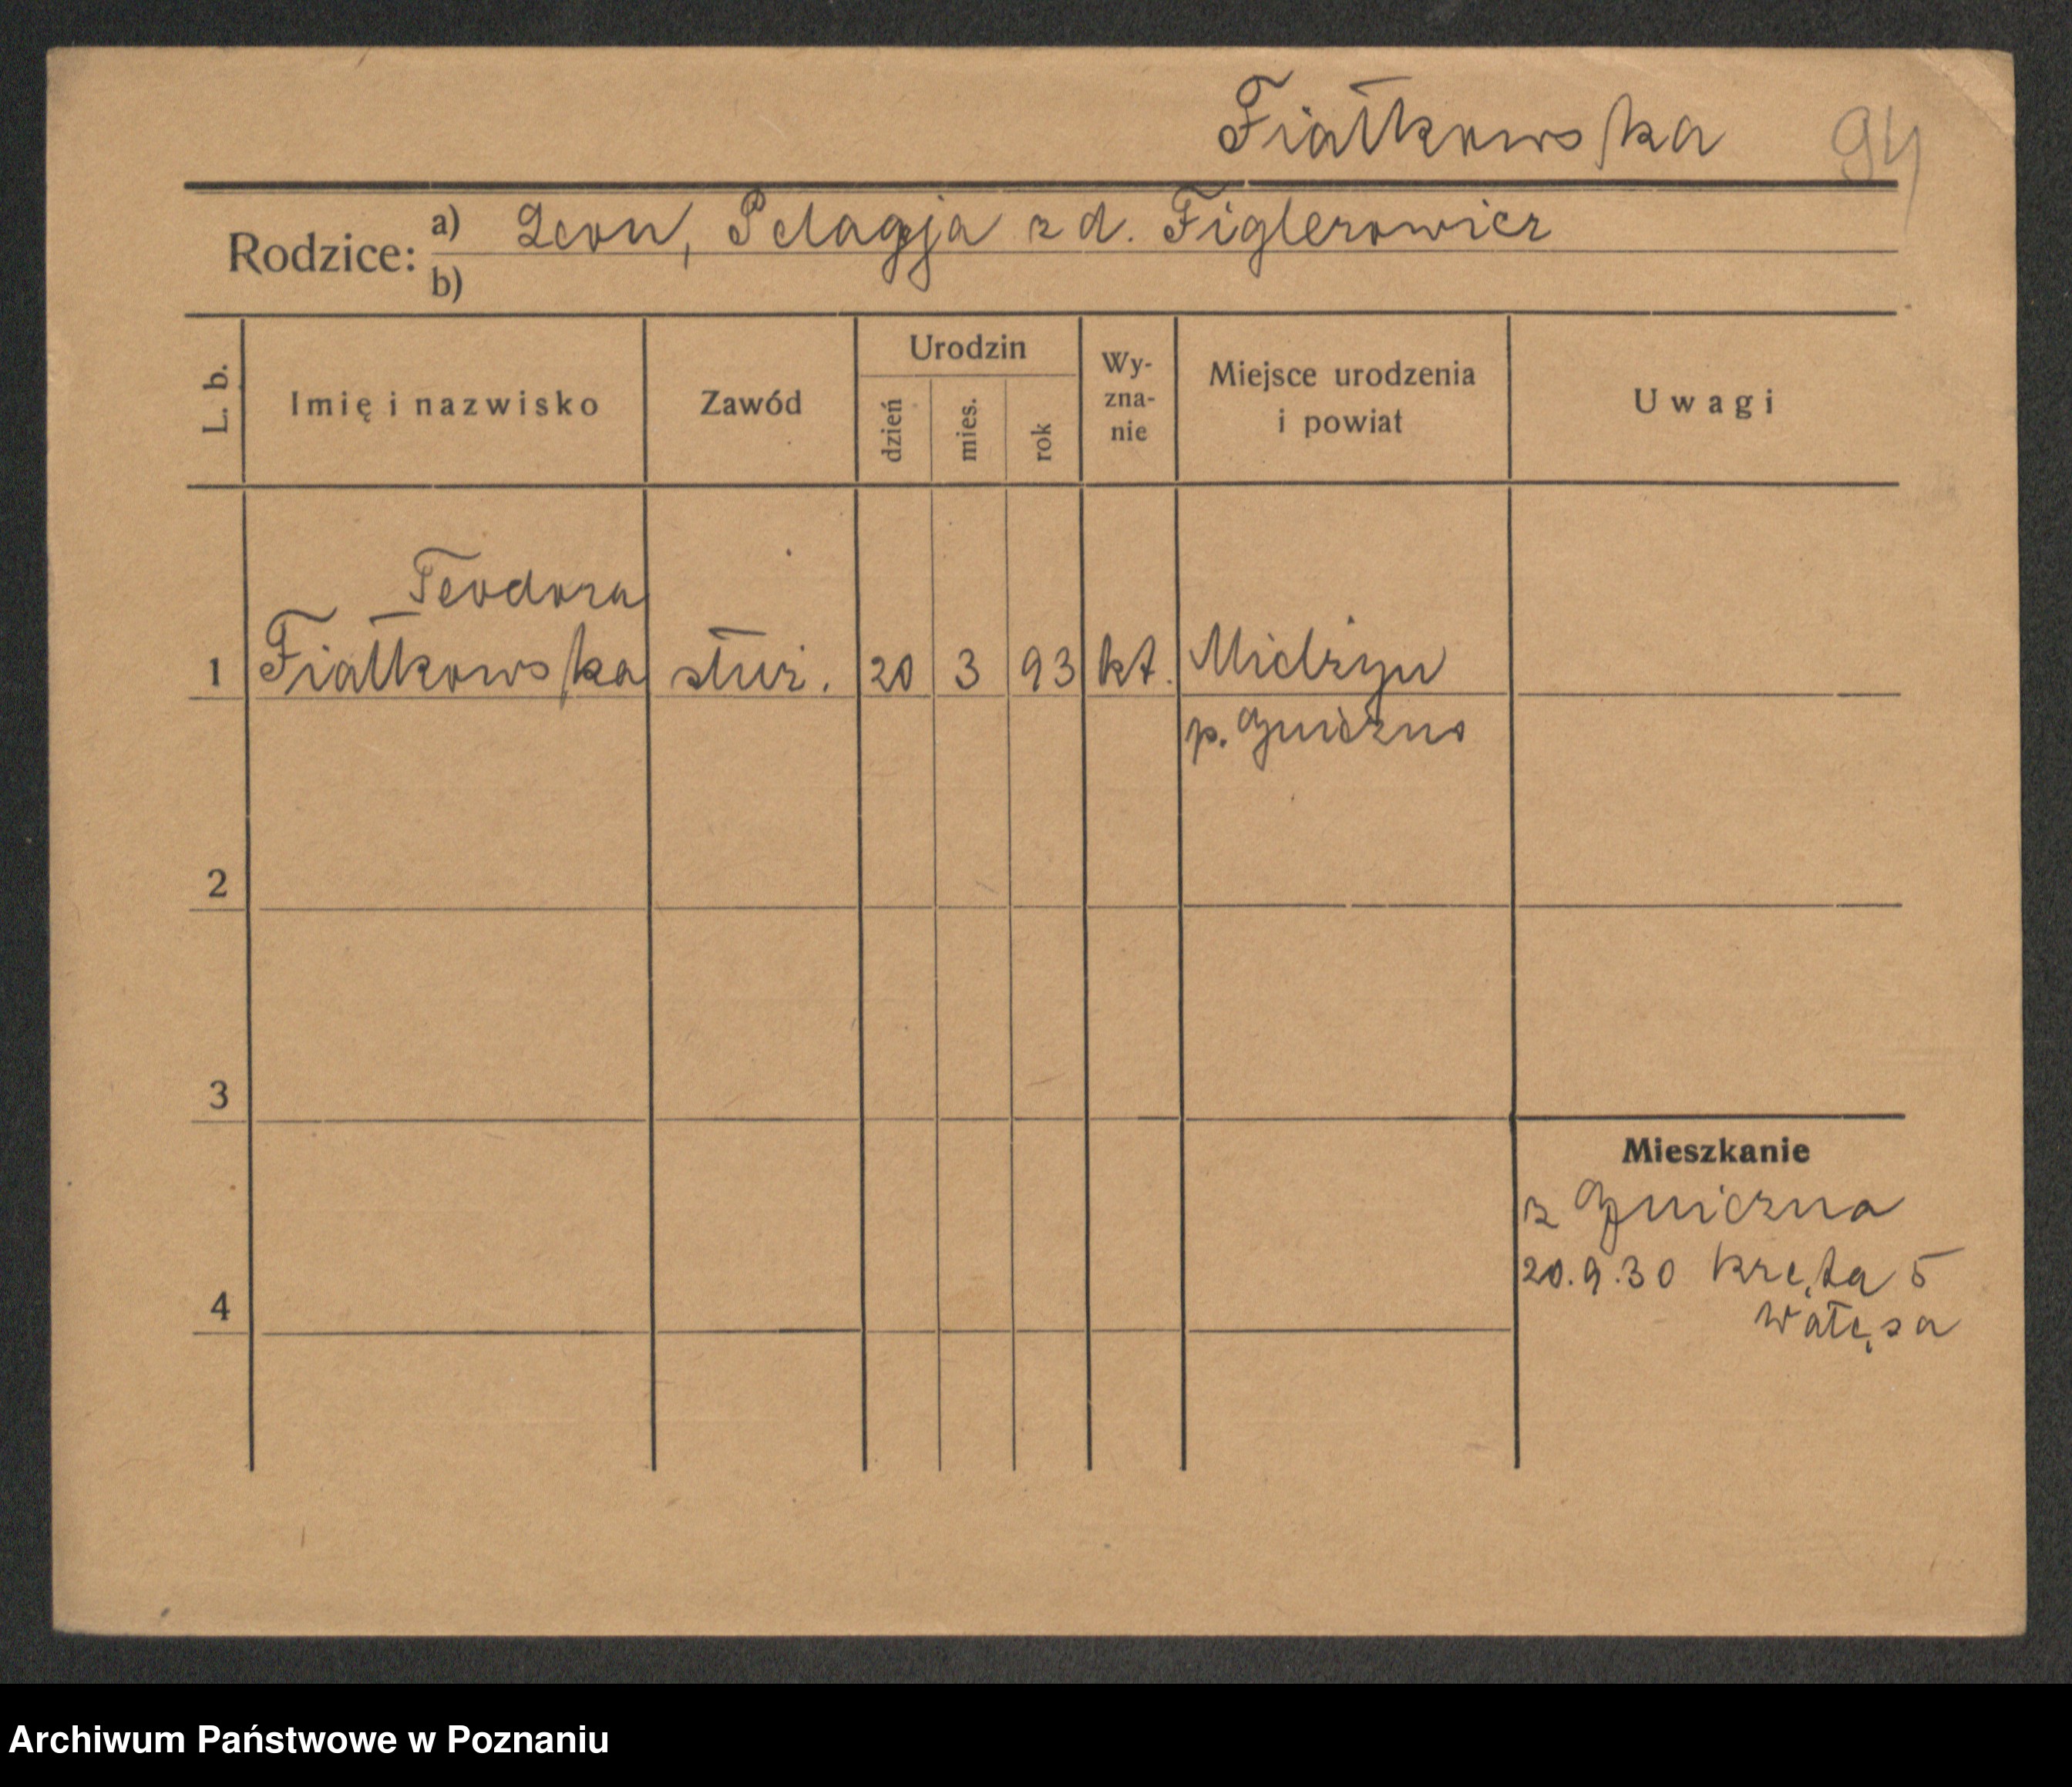 Fiałkowska 94
Rodzice: a) Leon, Pelagja z d. Figlerowicz
b)
L. b. Imię i nazwisko Zawód Urodzin dzień mies. rok Wy-zna-nie Miejsce urodzenia i powiat Uwagi
Teodora
1 Fiałkowska służ. 20 3 93 kt. Mielżyn
p. Gniezno
2
3
Mieszkanie
z Gniezna
20.9.30 Kręta 5
4
Wałęsa
Archiwum Państwowe w Poznaniu